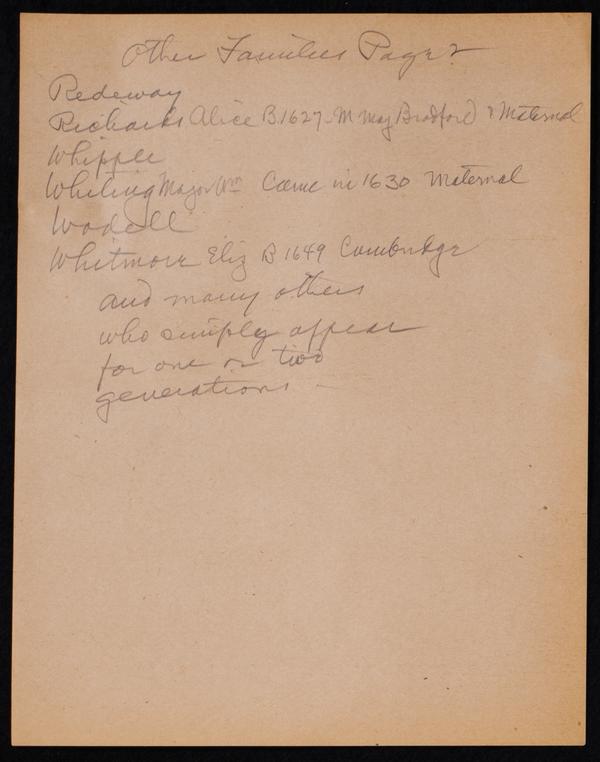 Other Families Page 2
Redeway
Richards Alice B. 1627 - M Maj Bradford & Maternal
Whipple
Whiting Major Wm Came in 1630 Maternal
Wodell
Whitmore Eliz B 1649 Cambridge
and many others
who simply appear
for one or two
generations -